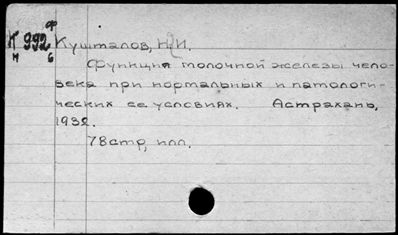 К 992 Ф Кушталов, Н.И.
н б
Функция молочной железы чело-
века при нормальных и патологи-
ческих ее условиях. Астрахань,
1932.
78стр, илл.